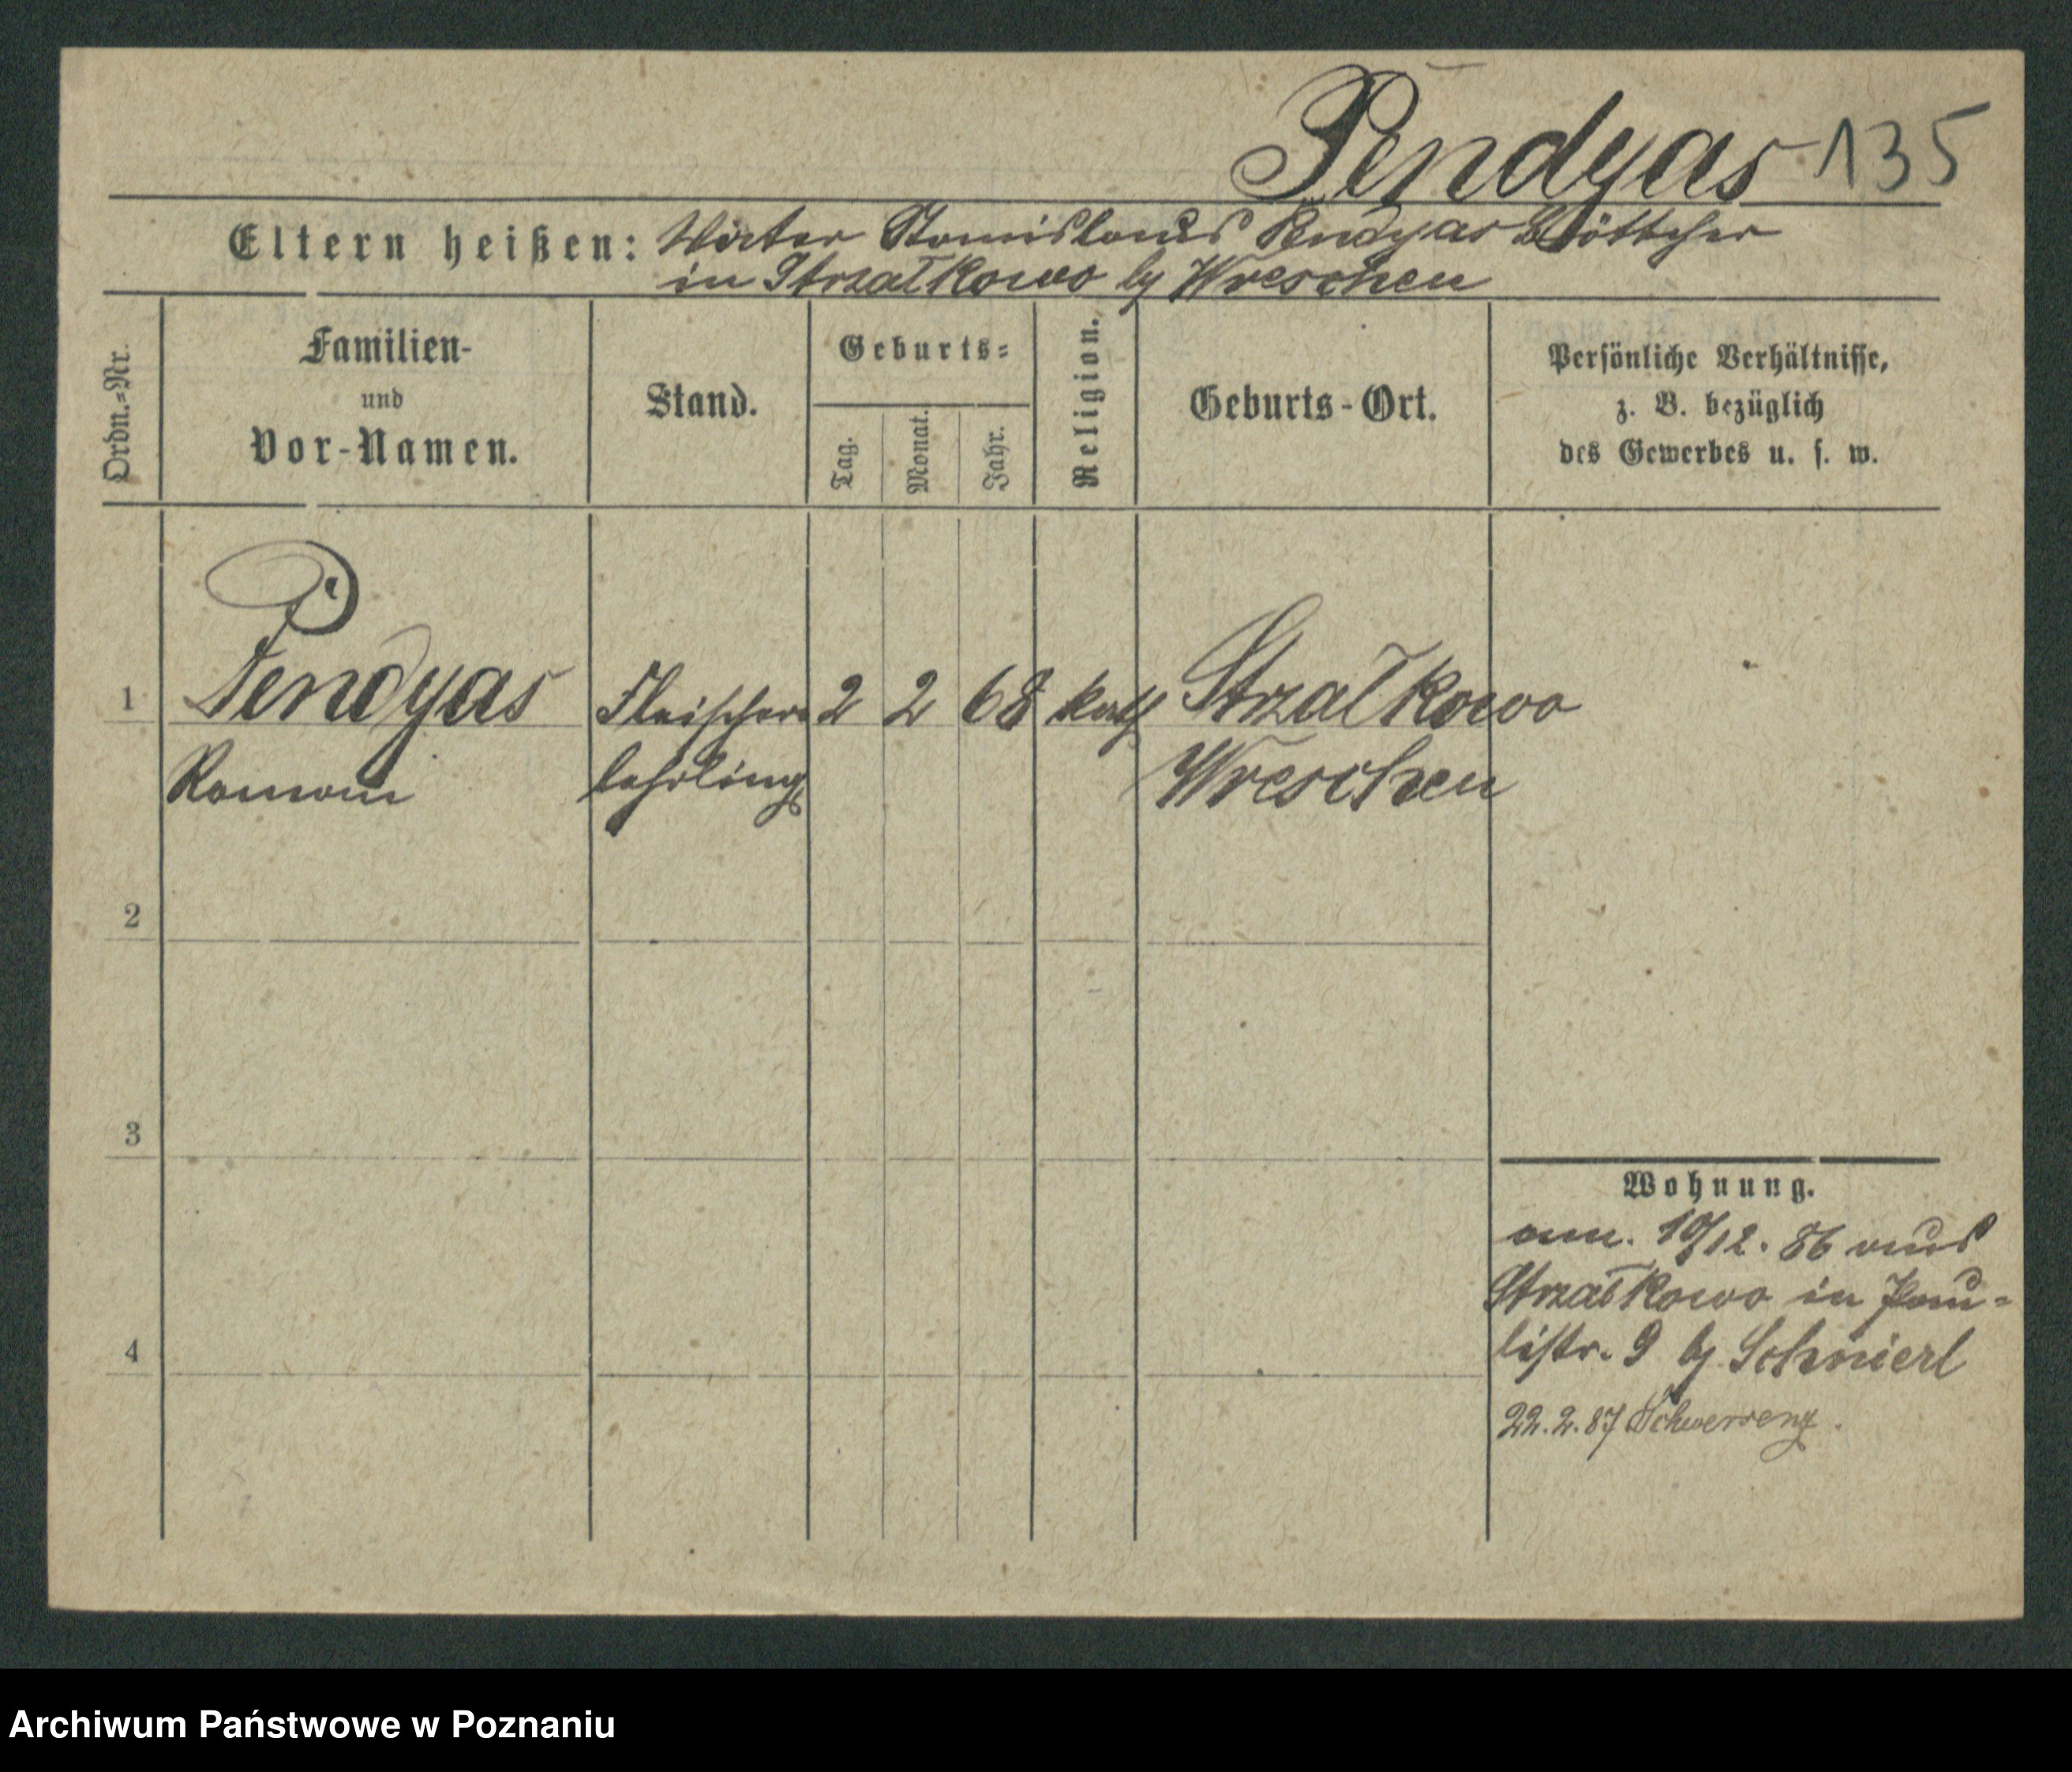 Pendyas 135
Eltern heißen: Vater Stanislaus Pendyas Böttcher
in Strzałkowo by Wreschen
Ordn.=Nr.
Familien-
und
Vor-Namen.
Stand.
Geburts=
Tag.
Monat.
Jahr.
Religion.
Geburts-Ort.
Persönliche Verhältnisse,
z. B. bezüglich
des Gewerbes u. s. w.
1 Pendyas Fleischer 2 2 68 kath Strzałkowo
Roman lehrling Wreschen
2
3
4
Wohnung.
am. 10/12. 86 aus
Strzałkowo in Pau=
listr. 9 by
22.2.87 Schwersenz.
Archiwum Państwowe w Poznaniu